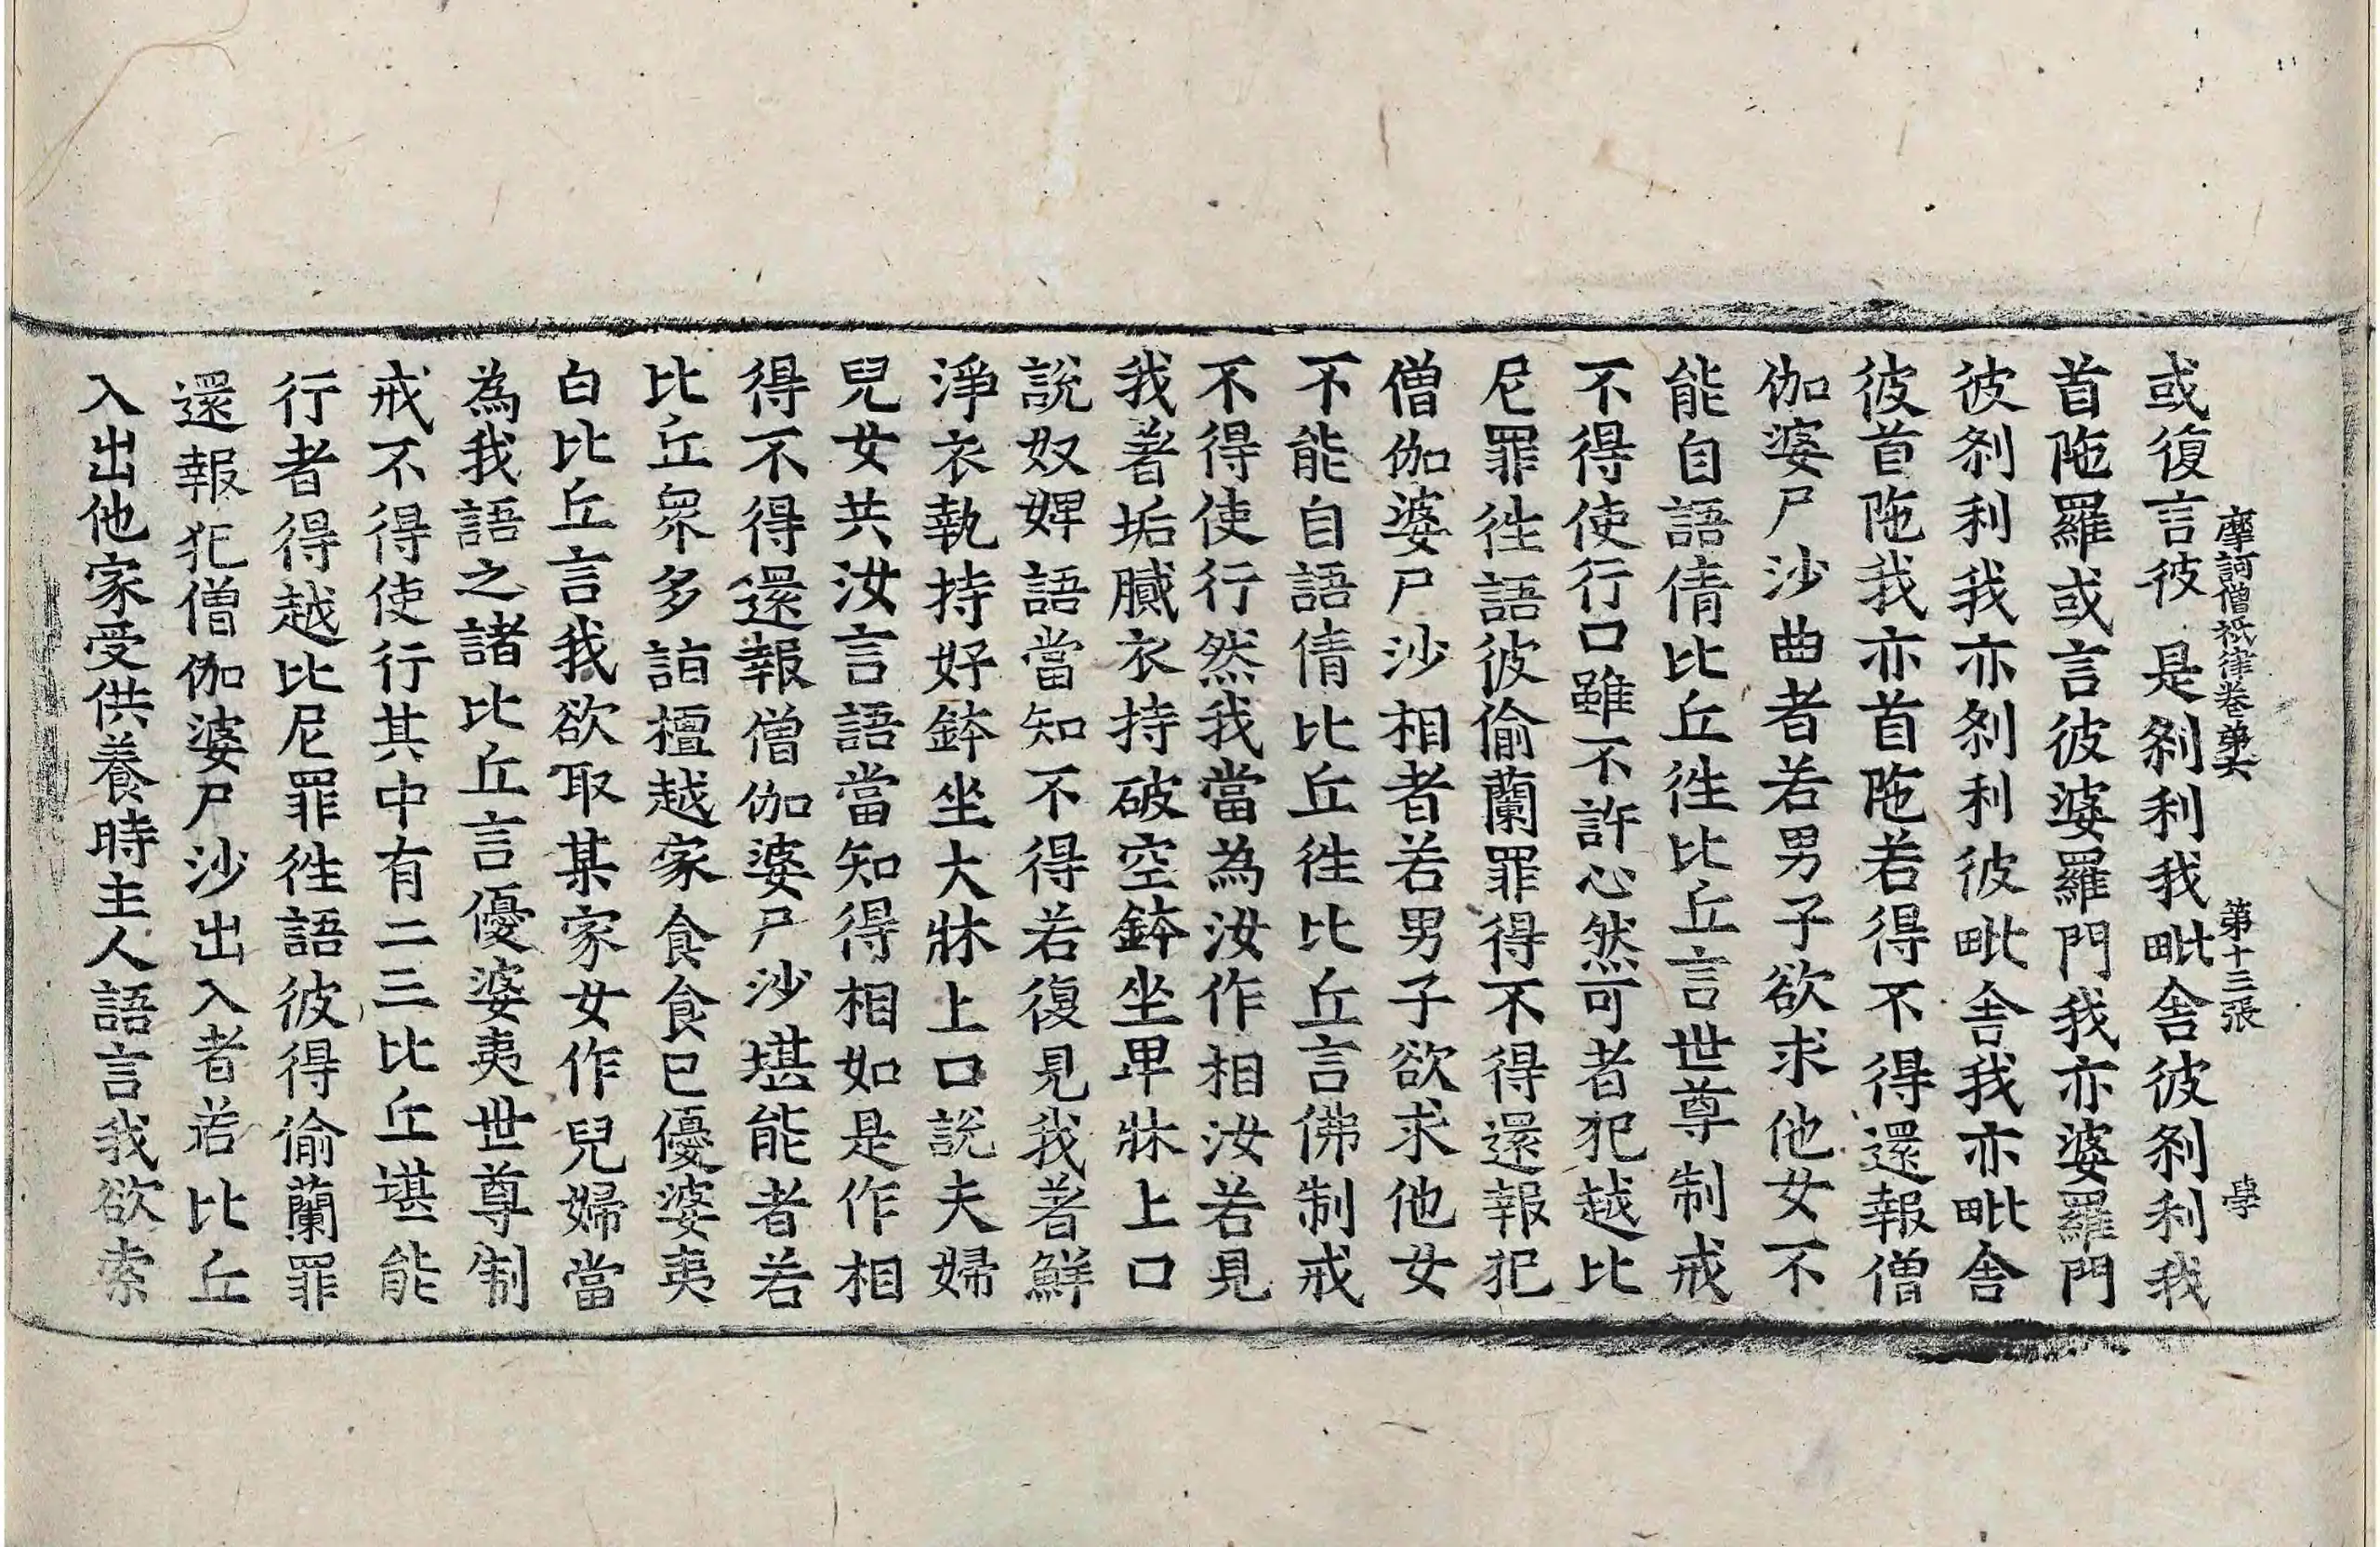 摩訶僧祇律卷第六　第十三張　學
或復言彼是剎利我毗舍彼剎利我
首陁羅或言彼婆羅門我亦婆羅門
彼剎利我亦剎利彼毗舍我亦毗舍
彼首陁我亦首陁若得不得還報僧
伽婆尸沙曲者若男子欲求他女不
能自語倩比丘徃比丘言世尊制戒
不得使行口雖不許心然可者犯越比
尼罪徃語彼偷蘭罪得不得還報犯
僧伽婆尸沙相者若男子欲求他女
不能自語倩比丘徃比丘言佛制戒
不得使行然我當為汝作相汝若見
我著垢膩衣持破空鉢坐卑牀上口
說奴婢語當知不得若復見我著鮮
淨衣執持好鉢坐大牀上口說夫婦
兒女共汝言語當知得相如是作相
得不得還報僧伽婆尸沙堪能者若
比丘眾多詣檀越家食食已優婆夷
白比丘言我欲取某家女作兒婦當
為我語之諸比丘言優婆夷世尊制
戒不得使行其中有二三比丘堪能
行者得越比尼罪徃語彼得偷蘭罪
還報犯僧伽婆尸沙出入者若比丘
入出他家受供養時主人語言我欲索